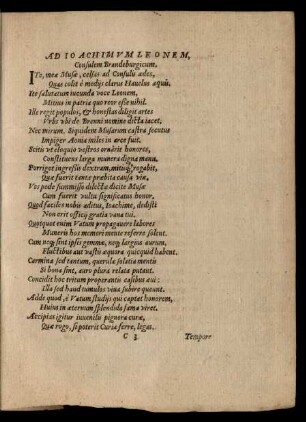 AD IOACHIMVM LEONEM,
Consulem Brandeburgicum.
ITe, meæ Musæ, celsas ad Consulis ædes,
Quas colit è medijs clarus Hauelus aquis.
Ite salutatum iucunda voce Leonem,
Mitius in patria quo reor esse nihil.
Ille regit populos, & honestas diligit artes
Vrbs vbi de Brenni nomine dicta iacet,
Nec mirum. Siquidem Musarum castra secutus
Impiger Aonia miles in arce fuit.
Scitis vt eloquio vestros ornârit honores,
Constituens larga munera digna manu.
Porriget ingressis dextram, mitisq; rogabit,
Quæ fuerit tantæ præbita causa viæ.
Voce pede summisso dilecta dicite Musæ
Cum fuerit vultu significatus honor.
Quod faciles nobis aditus, Ioachime, dedisti
Non erit officij gratia vana tui.
Quotquot enim Vatum propagauere labores
Muneris hos memori mente referre solent.
Cum non sint ipsis gemmæ, non largius aurum,
Fluctibus aut vastis æquora quicquid habent.
Carmina sed tantum, querulæ solatia mentis
Si bona sint, auro plura relata putant.
Concidit hoc tritum properantis casibus æui:
Illa sed haud tumulos vina subire queunt.
Adde quod, è Vatum studijs qui captat honorem,
Huius in æternum splendida fama viret.
Accipias igitur iuuenilis pignora curæ,
Quæ rogo, si poterit Curia ferre, legas.
C 3 Tempore